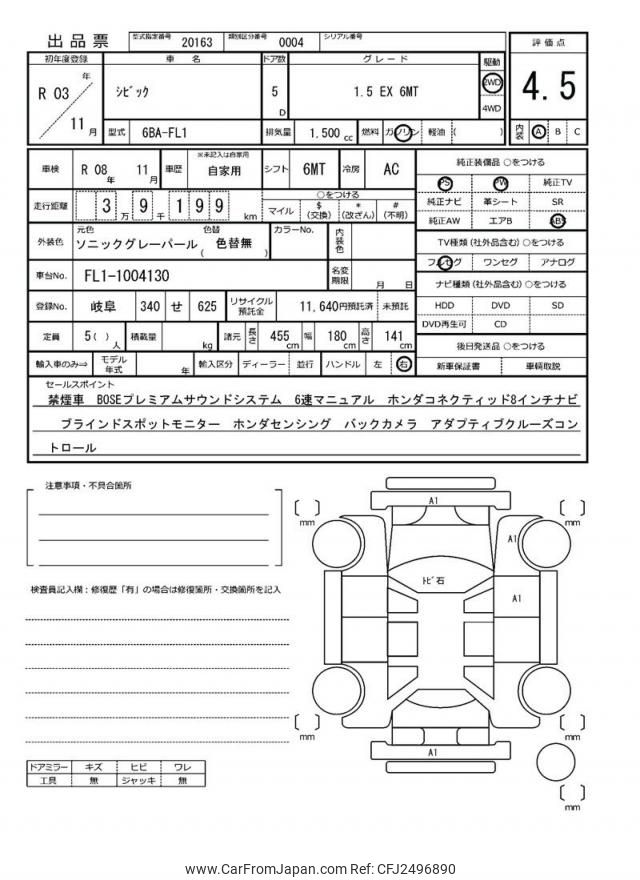 出品票 型式指定番号 20163 類別区分番号 0004 シリアル番号
初年度登録 車名 ドア数 グレード 駆動 評価点
R 03 年 11 月 シビック 5 D 1.5 EX 6MT 2WD 4WD 4.5
型式 6BA-FL1 排気量 1,500 cc 燃料 ガソリン 軽油 ( ) 内装 A B C
車検 R 08 年 11 月 車歴 ※未記入は自家用 自家用 シフト 6MT 冷房 AC
純正装備品 ○をつける
PS PW 純正TV
純正ナビ 革シート SR
純正AW エアB ABS
走行距離 3 万 9 千 1 9 9 km ○をつける マイル $ (交換) * (改ざん) # (不明)
TV種類 (社外品含む) ○をつける
フルセグ ワンセグ アナログ
外装色 元色 ソニックグレーパール 色替 ( 色替無 ) カラーNo. 内装色
車台No. FL1-1004130 名変期限 月 日
ナビ種類 (社外品含む) ○をつける
HDD DVD SD
DVD再生可 CD
登録No. 岐阜 340 せ 625 リサイクル預託金 11,640円預託済 未預託
定員 5 ( ) 人 積載量 kg 諸元 長さ 455 cm 幅 180 cm 高さ 141 cm
後日発送品 ○をつける
新車保証書 車輌取説
輸入車のみ⇒ モデル年式 年 輸入区分 ディーラー 並行 ハンドル 左 右
セールスポイント
禁煙車 BOSEプレミアムサウンドシステム 6速マニュアル ホンダコネクティッド8インチナビ
ブラインドスポットモニター ホンダセンシング バックカメラ アダプティブクルーズコン
トロール
注意事項・不具合箇所
検査員記入欄：修復歴「有」の場合は修復箇所・交換箇所を記入
ドアミラー キズ ヒビ ワレ
工具 無 ジャッキ 無
A1
mm
mm
A1
トビ石
A1
mm
mm
A1
mm
www.CarFromJapan.com Ref: CFJ2496890